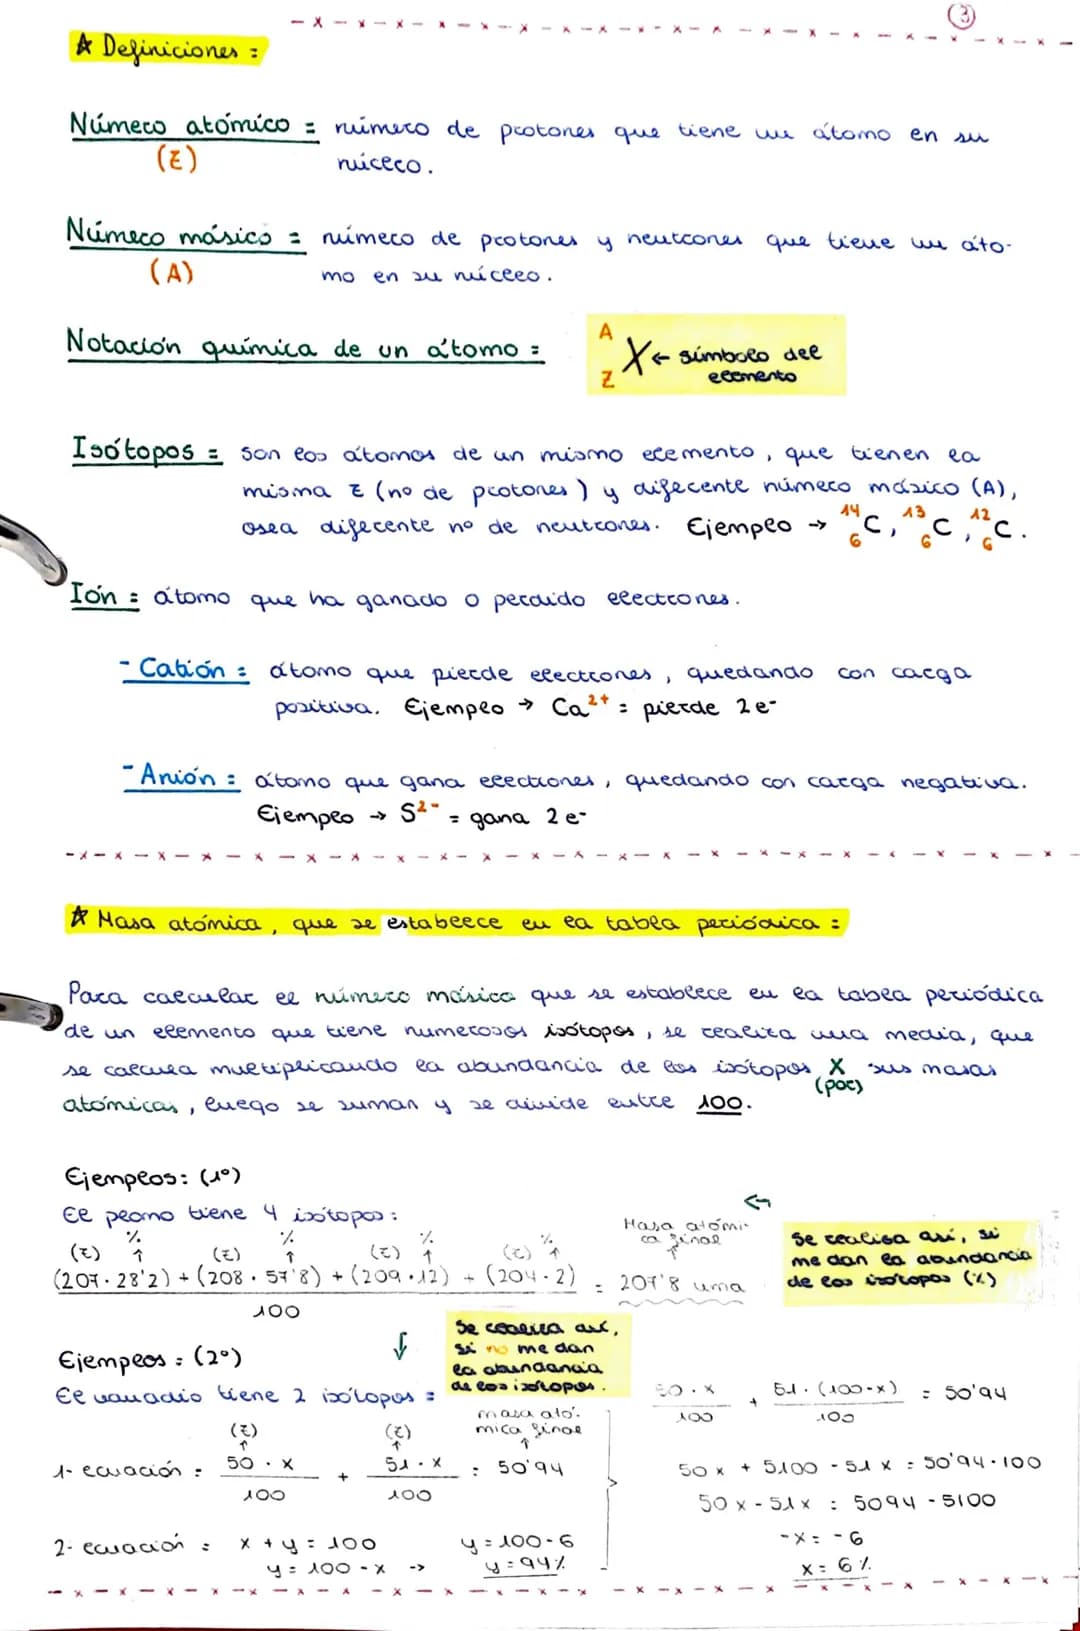 3
☆ Definiciones :
Número atómico = número de protones que tiene un átomo en su
(Z) núcleo.
Número másico = número de protones y neutrones que tiene un áto-
(A) mo en su núcleo.
Notación química de un átomo =
A
Z X ← símbolo del
elemento
Isótopos = son los átomos de un mismo elemento, que tienen la
misma Z (nº de protones) y diferente número másico (A),
osea diferente nº de neutrones. Ejemplo → ¹⁴₆C, ¹³₆C, ¹²₆C.
Ión = átomo que ha ganado o perdido electrones.
- Catión = átomo que pierde electrones, quedando con carga
positiva. Ejemplo → Ca²⁺ = pierde 2e-
- Anión = átomo que gana electrones, quedando con carga negativa.
Ejemplo → S²⁻ = gana 2e-
☆ Masa atómica, que se establece en la tabla periódica :
Para calcular el número másico que se establece en la tabla periódica
de un elemento que tiene numerosos isótopos, se realiza una media, que
se calcula multiplicando la abundancia de los isótopos X sus masas
(por)
atómicas, luego se suman y se divide entre 100.
Ejemplos: (1º)
El plomo tiene 4 isótopos :
% % % %
(Z) ↑ (Z) ↑ (Z) ↑ (Z) ↑
(207 · 28'2) + (208 · 57'8) + (209 · 12) + (204 · 2) = 207'8 uma
100
Masa atómi-
ca final
↑
Se realisa así, si
me dan la abundancia
de los isótopos (%)
Ejemplos : (2º)
Se realiza así,
si no me dan
la abundancia
de los isótopos.
El vanadio tiene 2 isótopos =
(Z) (Z) masa ató-
mica final
↑ ↑ ↑
1- ecuación : 50 · x + 51 · x = 50'94
100 100
2- ecuación : x + y = 100
y = 100 - x →
y = 100 - 6
y = 94%
50 · x + 51 · (100-x) = 50'94
100 100
50x + 5100 - 51x = 50'94 · 100
50x - 51x = 5094 - 5100
-x = -6
x = 6%